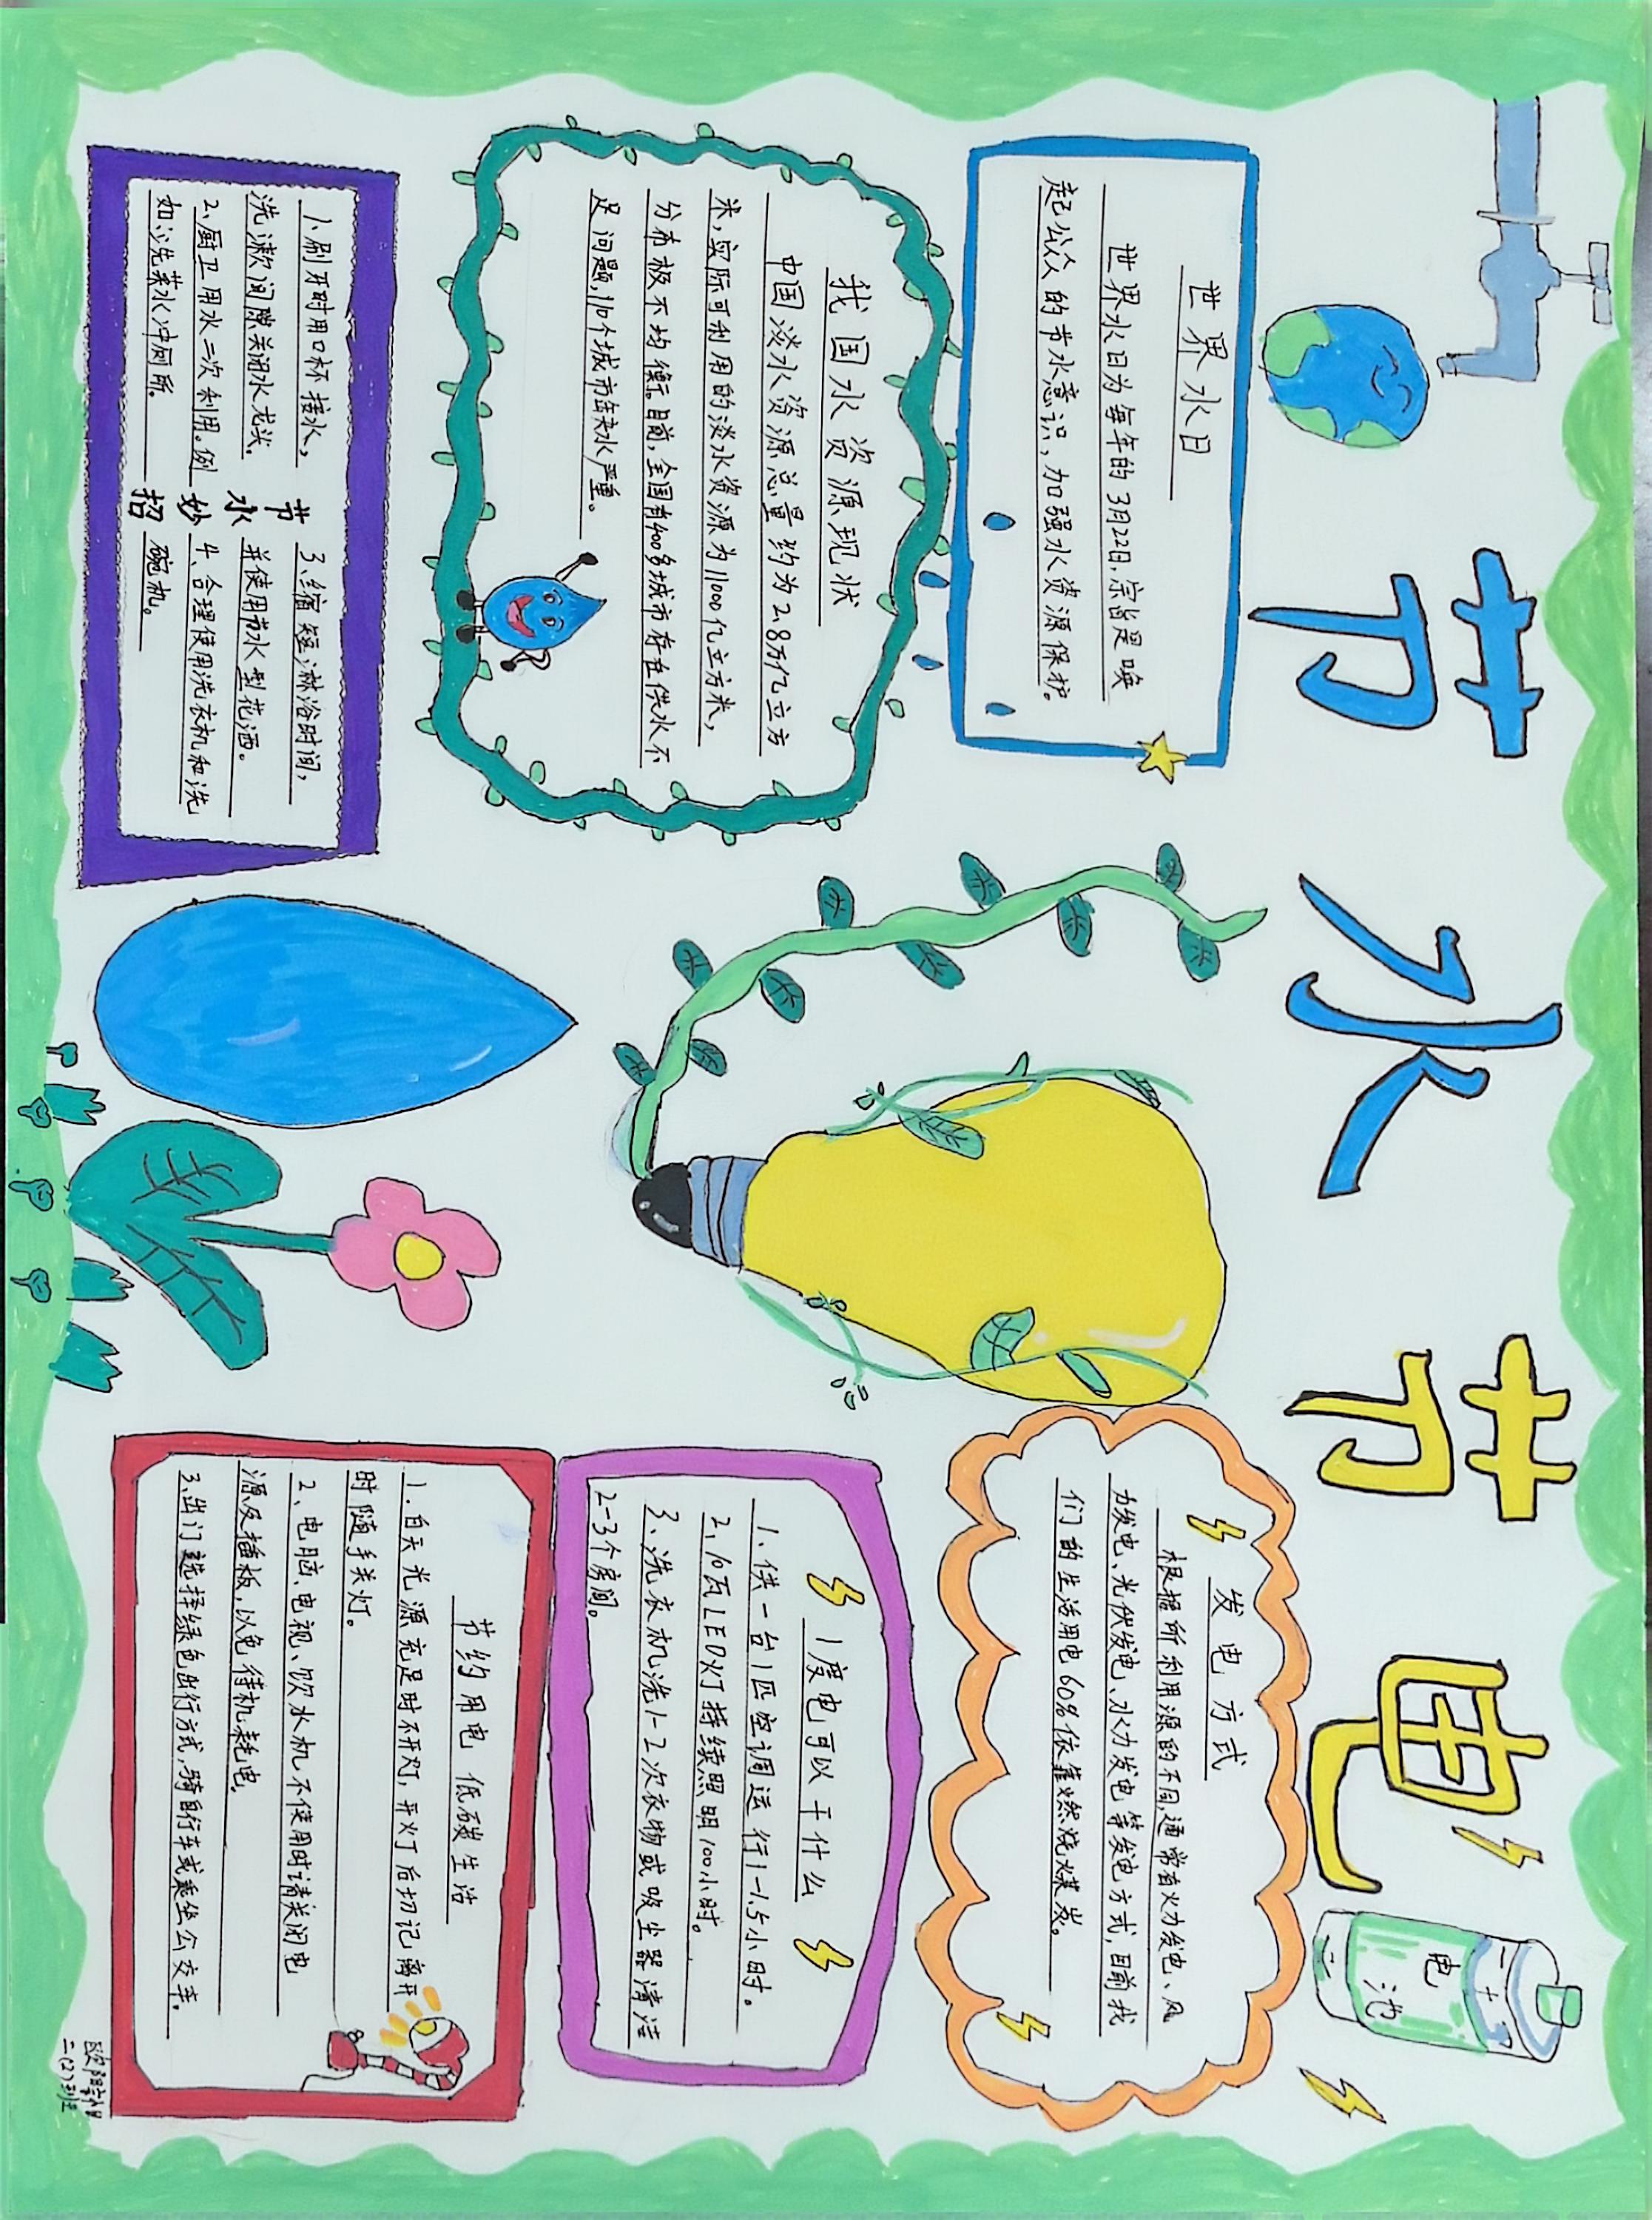 节水 节电
世界水日
世界水日为每年的3月22日,宗旨是唤
起公众的节水意识,加强水资源保护。
我国水资源现状
中国淡水资源总量约为2.8万亿立方
米,实际可利用的淡水资源为11000亿立方米,
分布极不均衡。目前,全国有400多城市存在供水不
足问题,110个城市缺水严重。
节水妙招
1.刷牙时用口杯接水,
洗漱间隙关闭水龙头。
2.厨卫用水二次利用。例
如:洗菜水冲厕所。
3.缩短淋浴时间,
并使用节水型花洒。
4.合理使用洗衣机和洗
碗机。
电池
发电方式
根据所利用源的不同,通常有火力发电、风
力发电、光伏发电、水力发电等发电方式,目前我
们的生活用电60%依靠燃烧煤炭。
1度电可以干什么
1、供一台1匹空调运行1-1.5小时。
2、10瓦LED灯持续照明100小时。
3、洗衣机洗1-2次衣物或吸尘器清洁
2-3个房间。
节约用电 低碳生活
1.白天光源充足时不开灯,开灯后切记离开
时随手关灯。
2、电脑、电视、饮水机不使用时请关闭电
源及插板,以免待机耗电。
3.出门选择绿色出行方式,骑自行车或乘坐公交车。
二(2)班